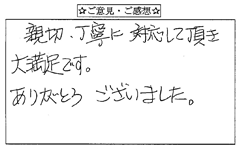 ☆ご意見・ご感想☆
親切、丁寧に対応して頂き
大満足です。
ありがとう ございました。